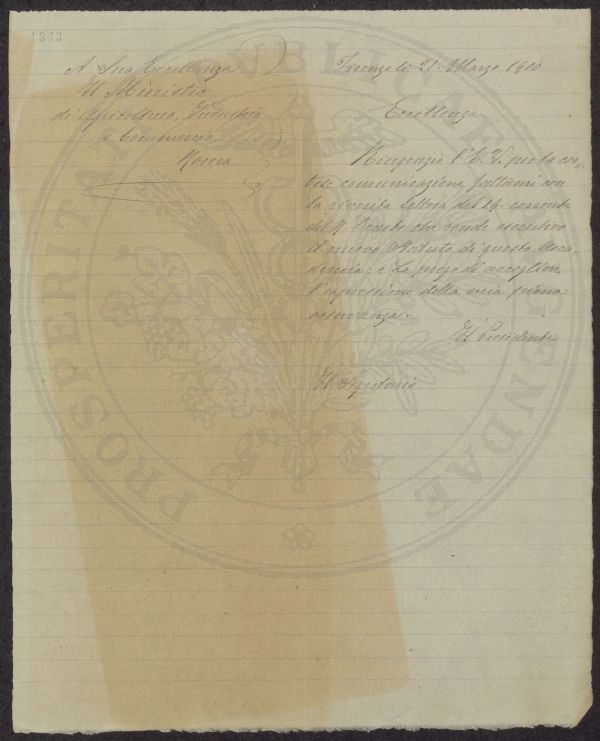 1363
A Sua Eccellenza
Il Ministro
di Agricoltura, Industria
e Commercio
Roma
Firenze lì 21. Marzo 1900
Eccellenza
Ringrazio l'E. V. per la cor-
tese comunicazione fattami con
la riverita lettera del 19. corrente
del R. Decreto che rende esecutivo
il nuovo Statuto di questa Acca-
demia: e La prego di accogliere
l'espressione della mia piena
osservanza.
Il Presidente
Il Segretario
PROSPERITATI PUBLICAE AUGENDAE